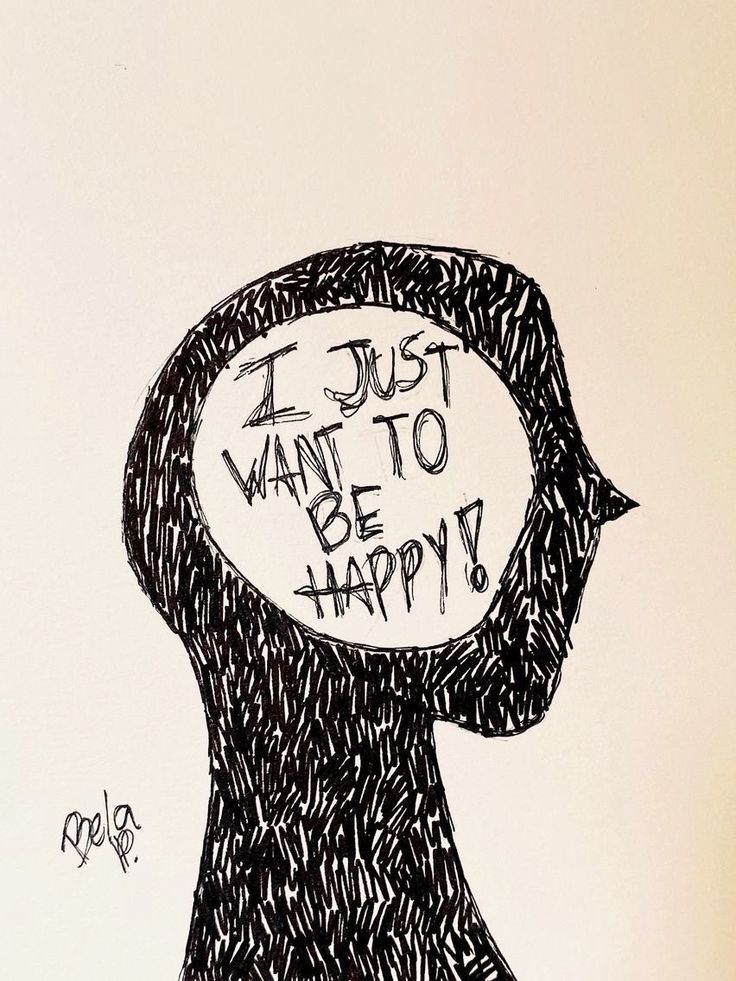 I JUST
WANT TO
BE
HAPPY!
Bela
P.